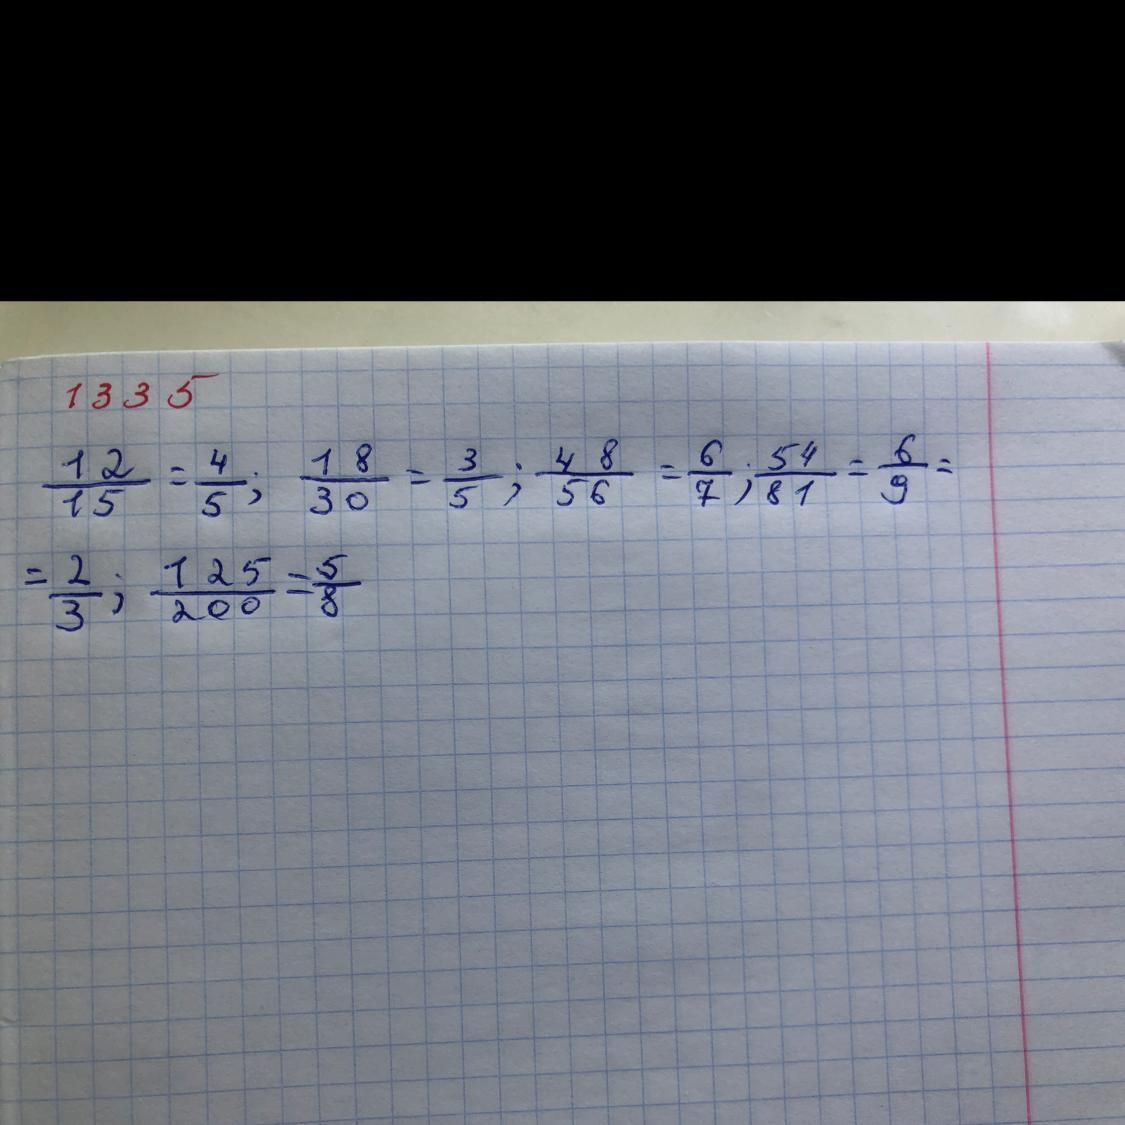 1335
12/15 = 4/5; 18/30 = 3/5; 48/56 = 6/7; 54/81 = 6/9 =
= 2/3; 125/200 = 5/8